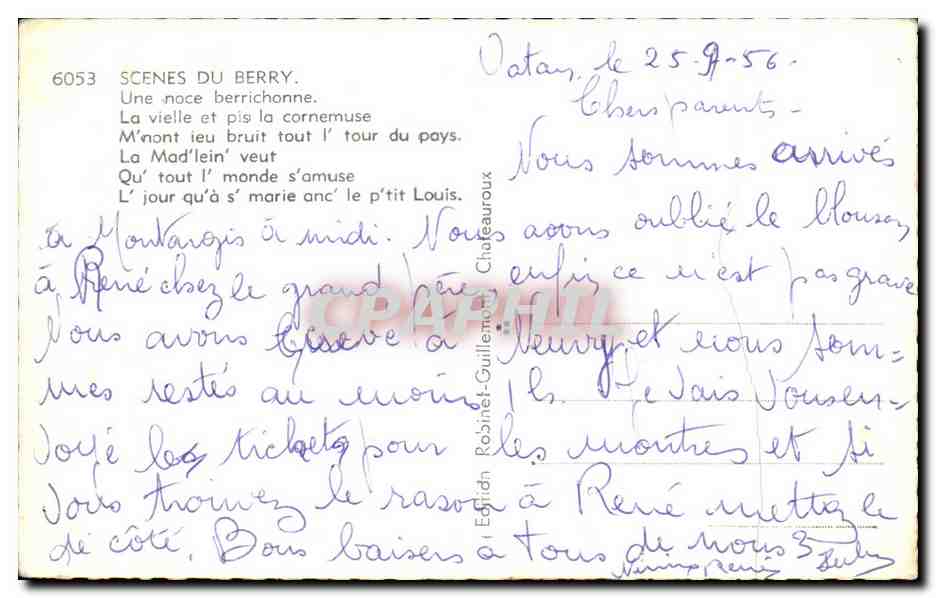 6053 SCENES DU BERRY.
Une noce berrichonne.
La vielle et pis la cornemuse
M'nont ieu bruit tout l' tour du pays.
La Mad'lein' veut
Qu' tout l' monde s'amuse
L' jour qu'à s' marie anc' le p'tit Louis.
Edition Robinet-Guillemont Chateauroux
CPAPHIL
Vatan, le 25-9-56.
Chers parents-
Nous sommes arrivés
à Montargis à midi. Nous avons oublié le blouson
à René chez le grand père, enfin ce n'est pas grave
Nous avons crevé à Neuvy et nous som=
mes restés au moins 1h. Je vais vous en=
voyé les tickets pour les montres et si
vous trouvez le rasoir à René mettez le
de côté. Bons baisers à tous de nous 3
René